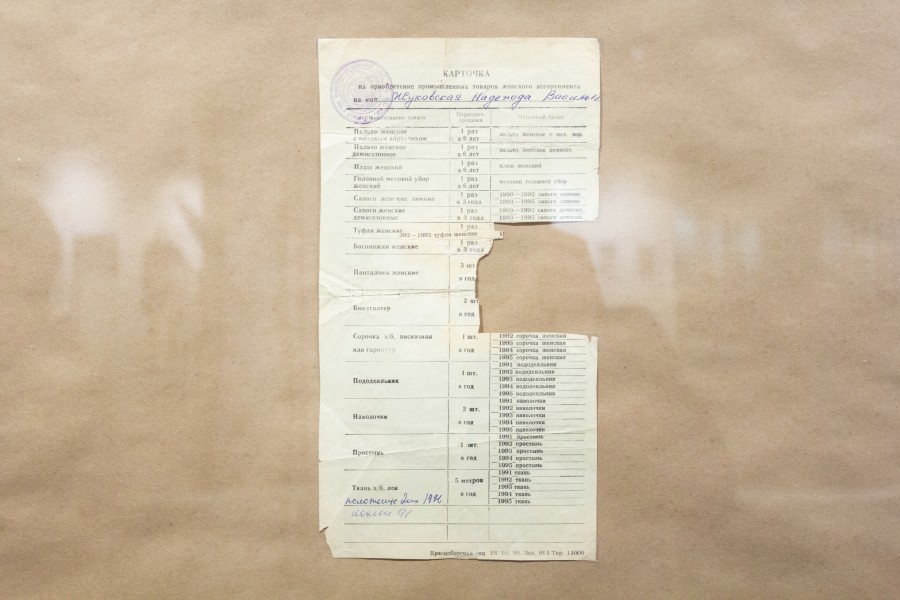 КАРТОЧКА
на приобретение промышленных товаров женского ассортимента
на имя Жуковская Надежда Василье
Наименование товара Периодич. продажи Отрезной талон
Пальто женское 1 раз
с меховым воротником в 6 лет пальто женское с мех. вор.
Пальто женское 1 раз
демисезонное в 6 лет пальто женское демисез.
Плащ женский 1 раз
в 6 лет плащ женский
Головной меховой убор 1 раз
женский в 6 лет меховой головной убор
Сапоги женские зимние 1 раз
в 3 года
1990—1992 сапоги зимние
1993—1995 сапоги зимние
Сапоги женские 1 раз
демисезонные в 3 года
1990—1992 сапоги демисез.
1993—1995 сапоги демисез.
Туфли женские 1 раз
993—1995 туфли женские
Босоножки женские 1 раз
в 3 года
Панталоны женские 3 шт
в год
Бюстгалтер 2 шт
в год
Сорочка х/б, вискозная 1 шт.
или гарнитур в год
1992 сорочка женская
1993 сорочка женская
1994 сорочка женская
1995 сорочка женская
Пододеяльник 1 шт.
в год
1991 пододеяльник
1992 пододеяльник
1993 пододеяльник
1994 пододеяльник
1995 пододеяльник
Наволочки 2 шт.
в год
1991 наволочки
1992 наволочки
1993 наволочки
1994 наволочки
1995 наволочки
Простынь 1 шт.
в год
1991 простынь
1992 простынь
1993 простынь
1994 простынь
1995 простынь
Ткань х/б, лен 5 метров
в год
1991 ткань
1992 ткань
1993 ткань
1994 ткань
1995 ткань
91
Красноборская тип 18. 10. 90. Зак. 914 Тир. 14000